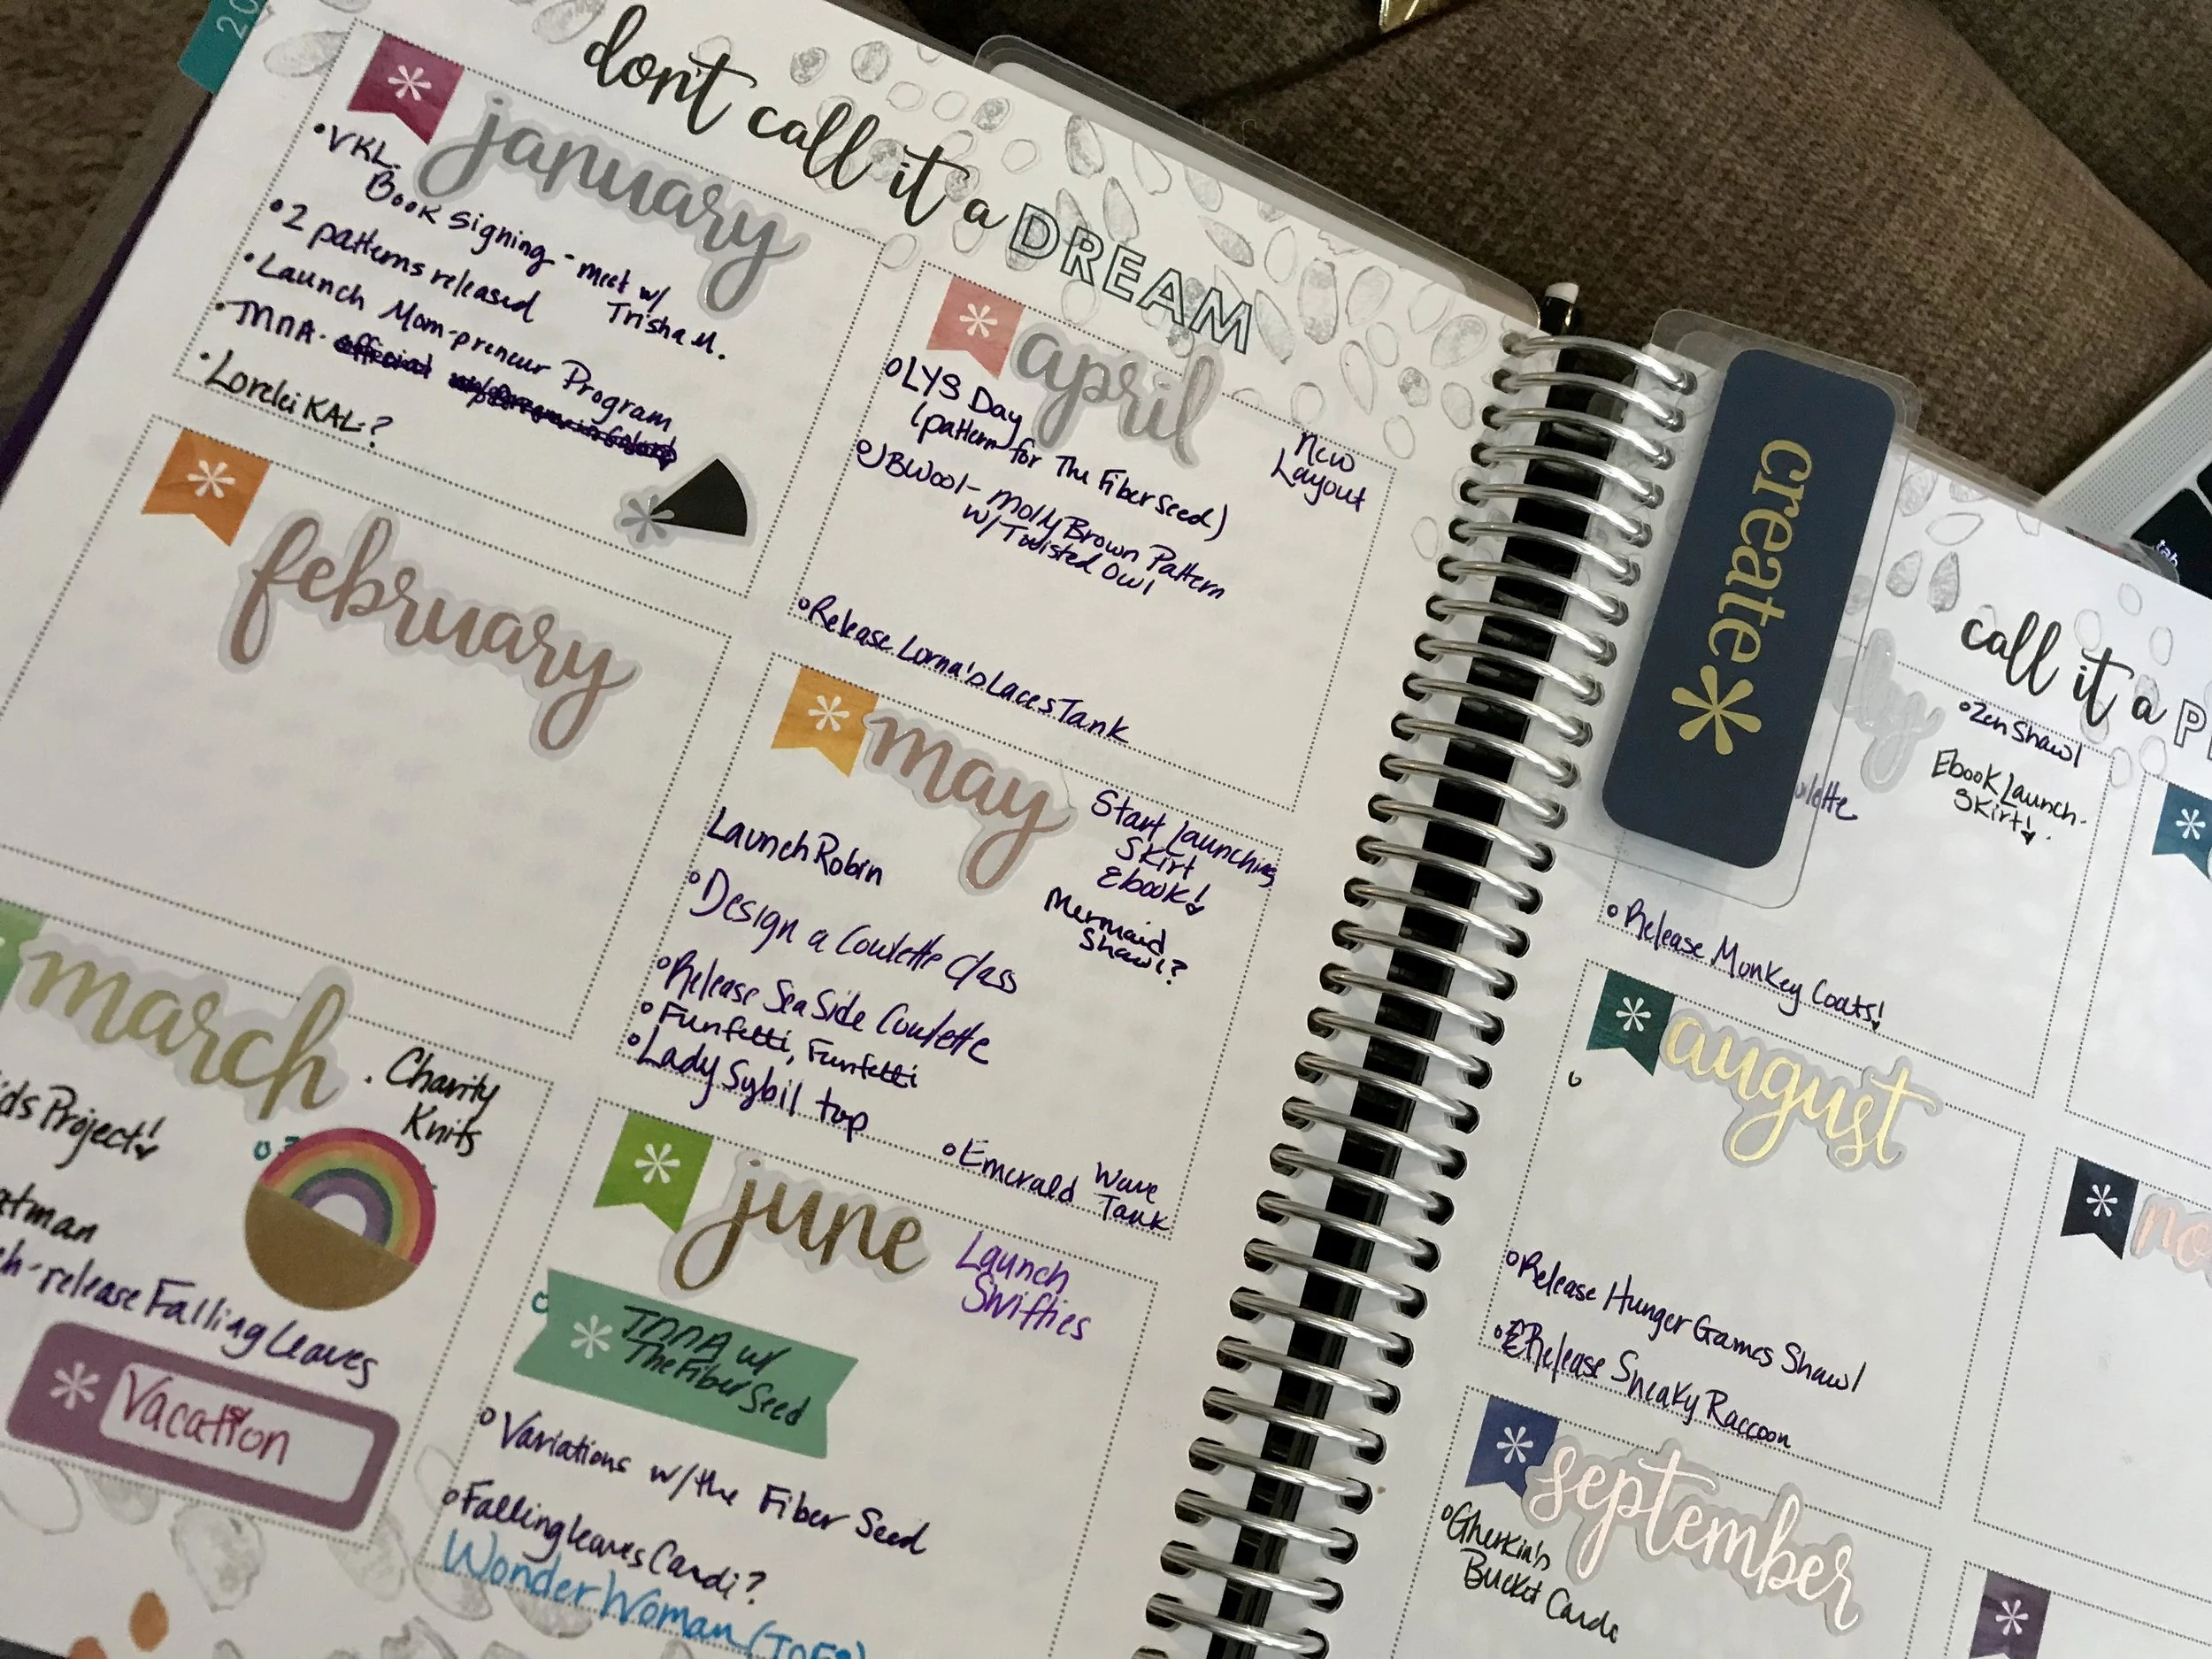 20
don't call it a DREAM
january
• VKL.
Book Signing - meet w/
Trisha M.
• 2 patterns released
• Launch Mom-preneur Program
• official
• Lorelei KAL?
february
march
• Charity
Knits
ds Project!
tman
ch - release Falling Leaves
Vacation
april
New
Layout
• LYS Day
(pattern for The Fiber Seed)
• JBWool - Molly Brown Pattern
w/ Twisted Owl
• Release Lorna's Laces Tank
may
Start Launching
Skirt
Ebook!
Mermaid
Shawl?
Launch Robin
• Design a Cowlette Class
• Release SeaSide Cowlette
• Funfetti, Funfetti
• Lady Sybil top
• Emerald Wave
Tank
june
Launch
Swifties
w/
The Fiber Seed
• Variations w/ the Fiber Seed
• Falling leaves Cardi?
Wonder Woman
create*
call it a P
ly
• Zen Shawl
Ebook Launch -
Skirt!
wlette
• Release Monkey Coats!
august
• Release Hunger Games Shawl
• Release Sneaky Raccoon
september
• Gherkin's
Bucket Cards
no
tab